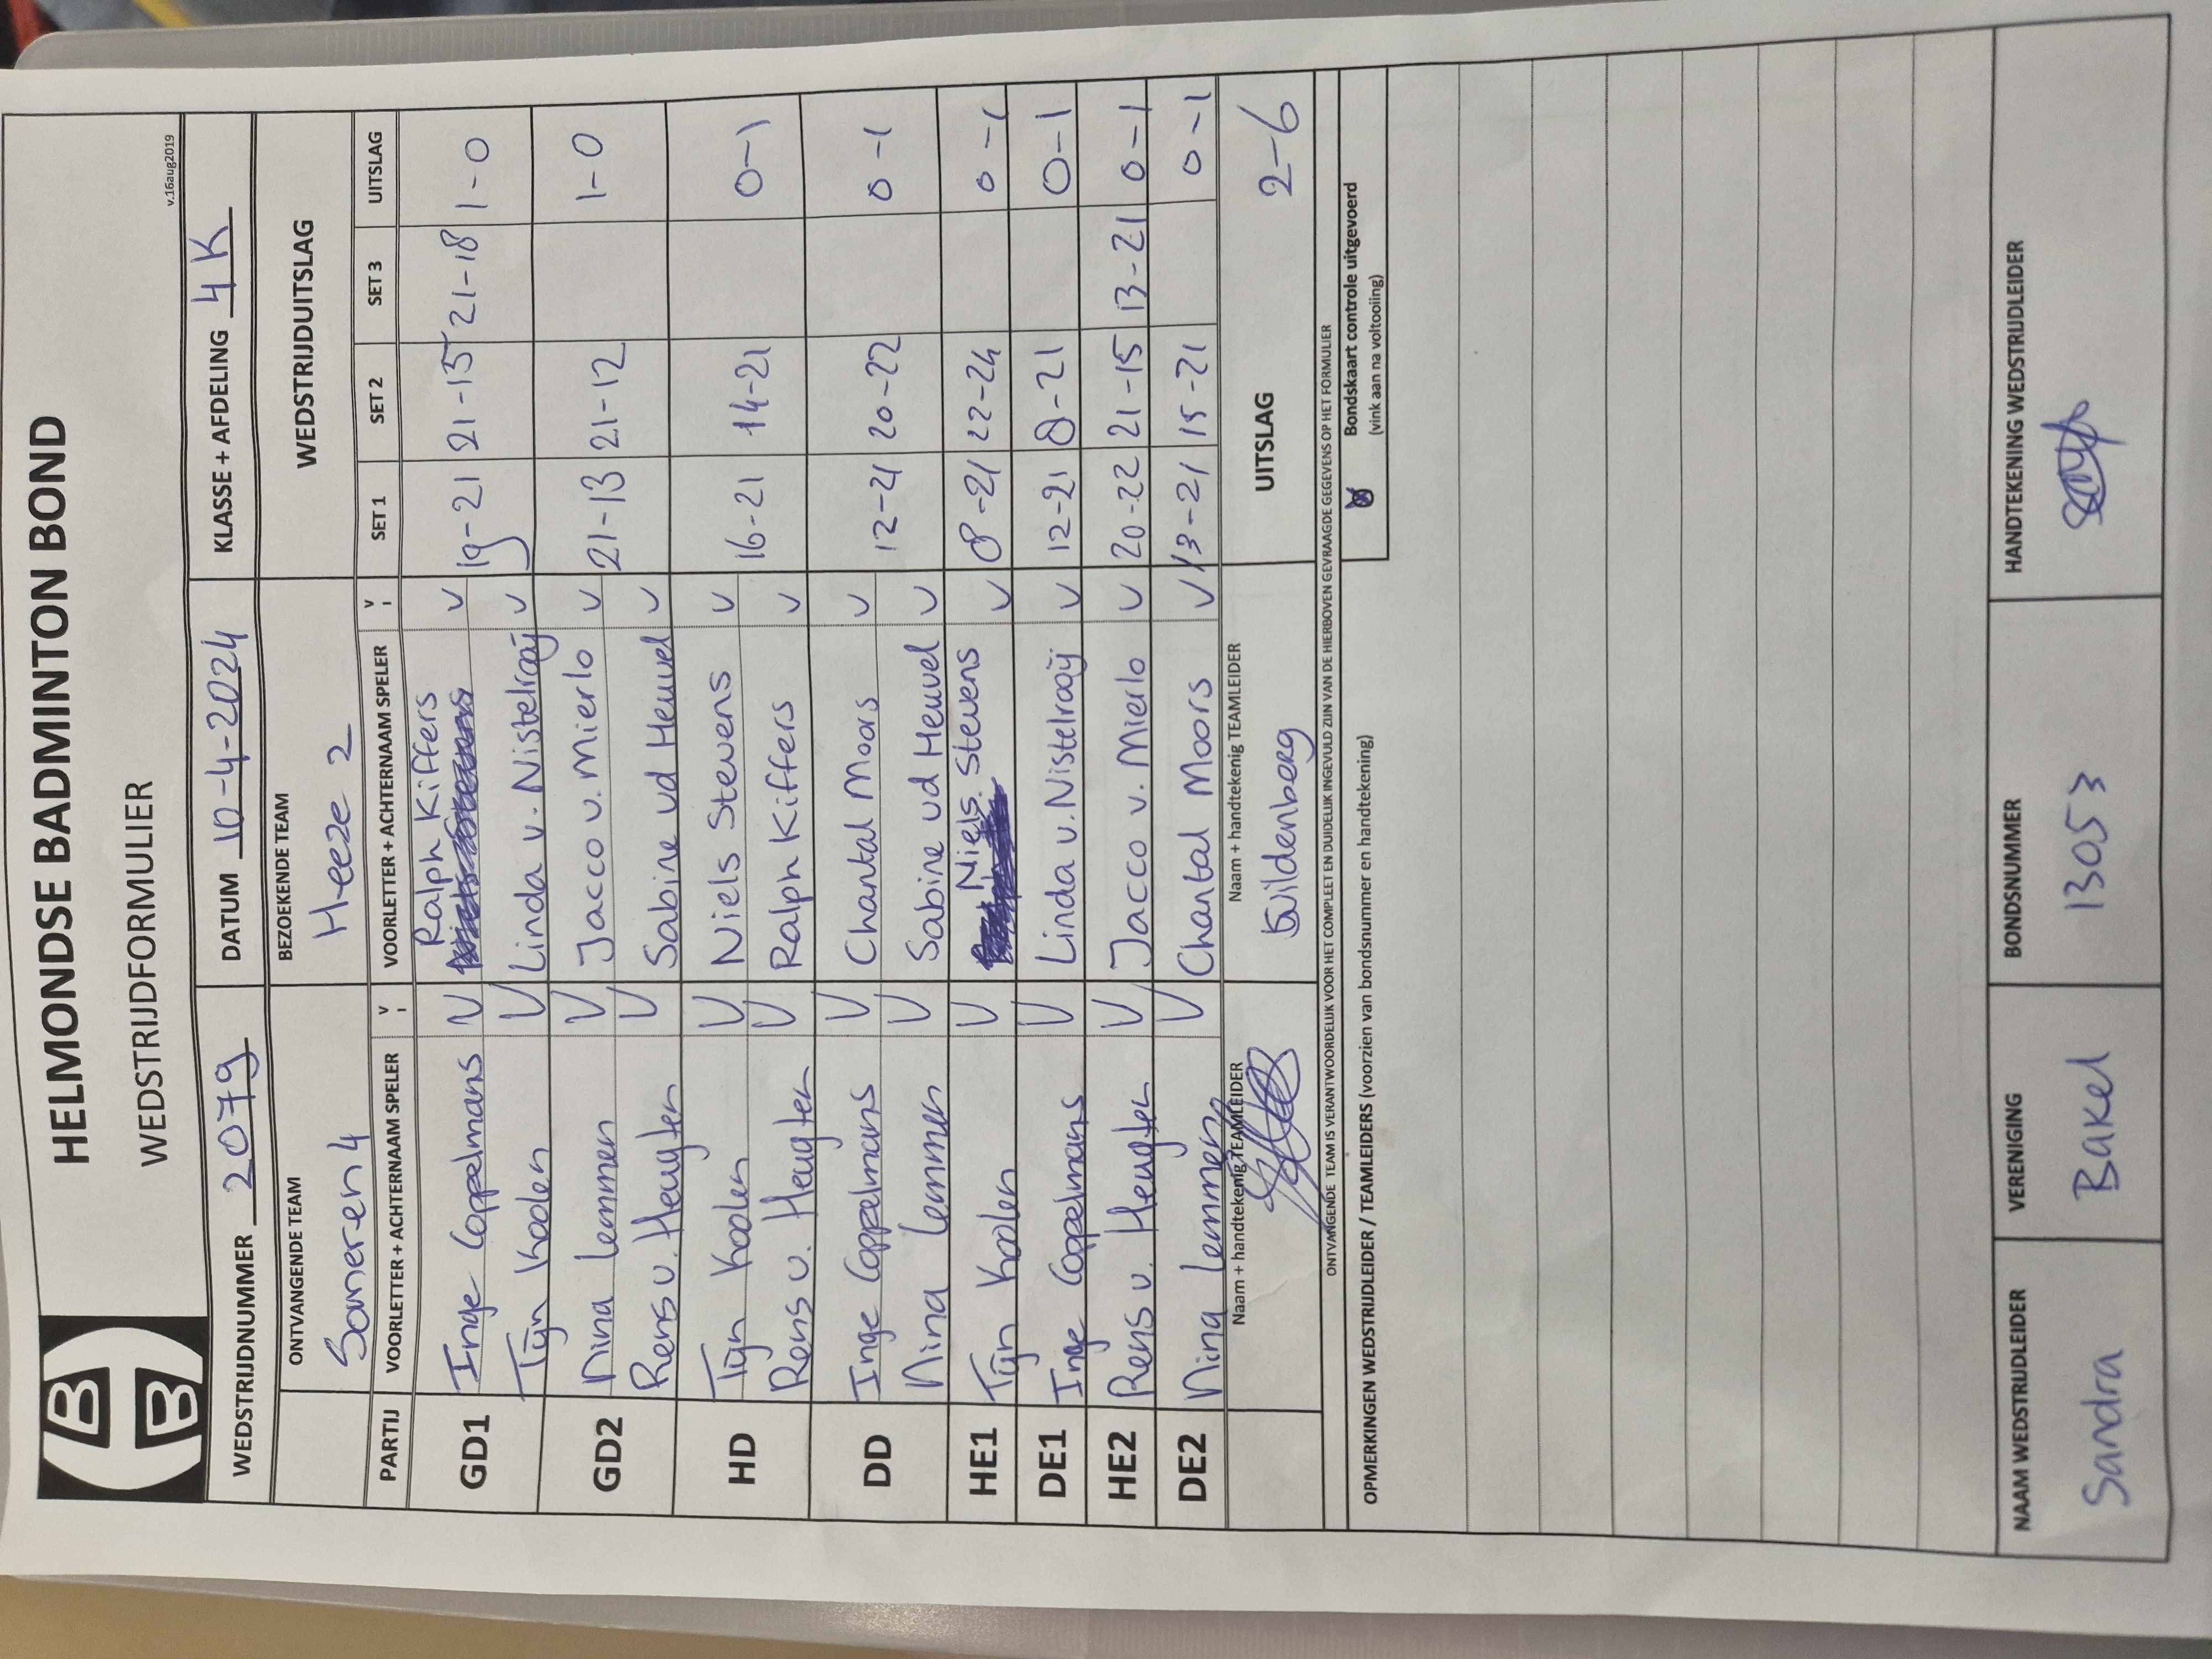 HELMONDSE BADMINTON BOND
WEDSTRIJDFORMULIER
v.16aug2019
WEDSTRIJDNUMMER 2079 DATUM 10-4-2024 KLASSE + AFDELING 4K
ONTVANGENDE TEAM BEZOEKENDE TEAM WEDSTRIJDUITSLAG
Someren 4 Heeze 2
PARTIJ VOORLETTER + ACHTERNAAM SPELER V VOORLETTER + ACHTERNAAM SPELER V SET 1 SET 2 SET 3 UITSLAG
GD1 Inge Coppelmans V Ralph Kiffers V 19-21 21-15 21-18 1-0
Tijn Koolen V Linda v. Nistelrooij V
GD2 Nina Lemmen V Jacco v. Mierlo V 21-13 21-12 1-0
Rens v. Heugten V Sabine vd Heuvel V
HD Tijn Koolen V Niels Stevens V 16-21 14-21 0-1
Rens v. Heugten V Ralph Kiffers V
DD Inge Coppelmans V Chantal Moors V 12-21 20-22 0-1
Nina Lemmen V Sabine vd Heuvel V
HE1 Tijn Koolen V Niels Stevens V 8-21 22-24 0-1
DE1 Inge Coppelmans V Linda v. Nistelrooij V 12-21 8-21 0-1
HE2 Rens v. Heugten V Jacco v. Mierlo V 20-22 21-15 13-21 0-1
DE2 Nina Lemmen V Chantal Moors V 13-21 15-21 0-1
Naam + handtekenig TEAMLEIDER Naam + handtekenig TEAMLEIDER UITSLAG 2-6
ONTVANGENDE TEAM IS VERANTWOORDELIJK VOOR HET COMPLEET EN DUIDELIJK INGEVULD ZIJN VAN DE HIERBOVEN GEVRAAGDE GEGEVENS OP HET FORMULIER
Bondskaart controle uitgevoerd
(vink aan na voltooiing)
OPMERKINGEN WEDSTRIJDLEIDER / TEAMLEIDERS (voorzien van bondsnummer en handtekening)
NAAM WEDSTRIJDLEIDER VERENIGING BONDSNUMMER HANDTEKENING WEDSTRIJDLEIDER
Sandra Bakel 13053